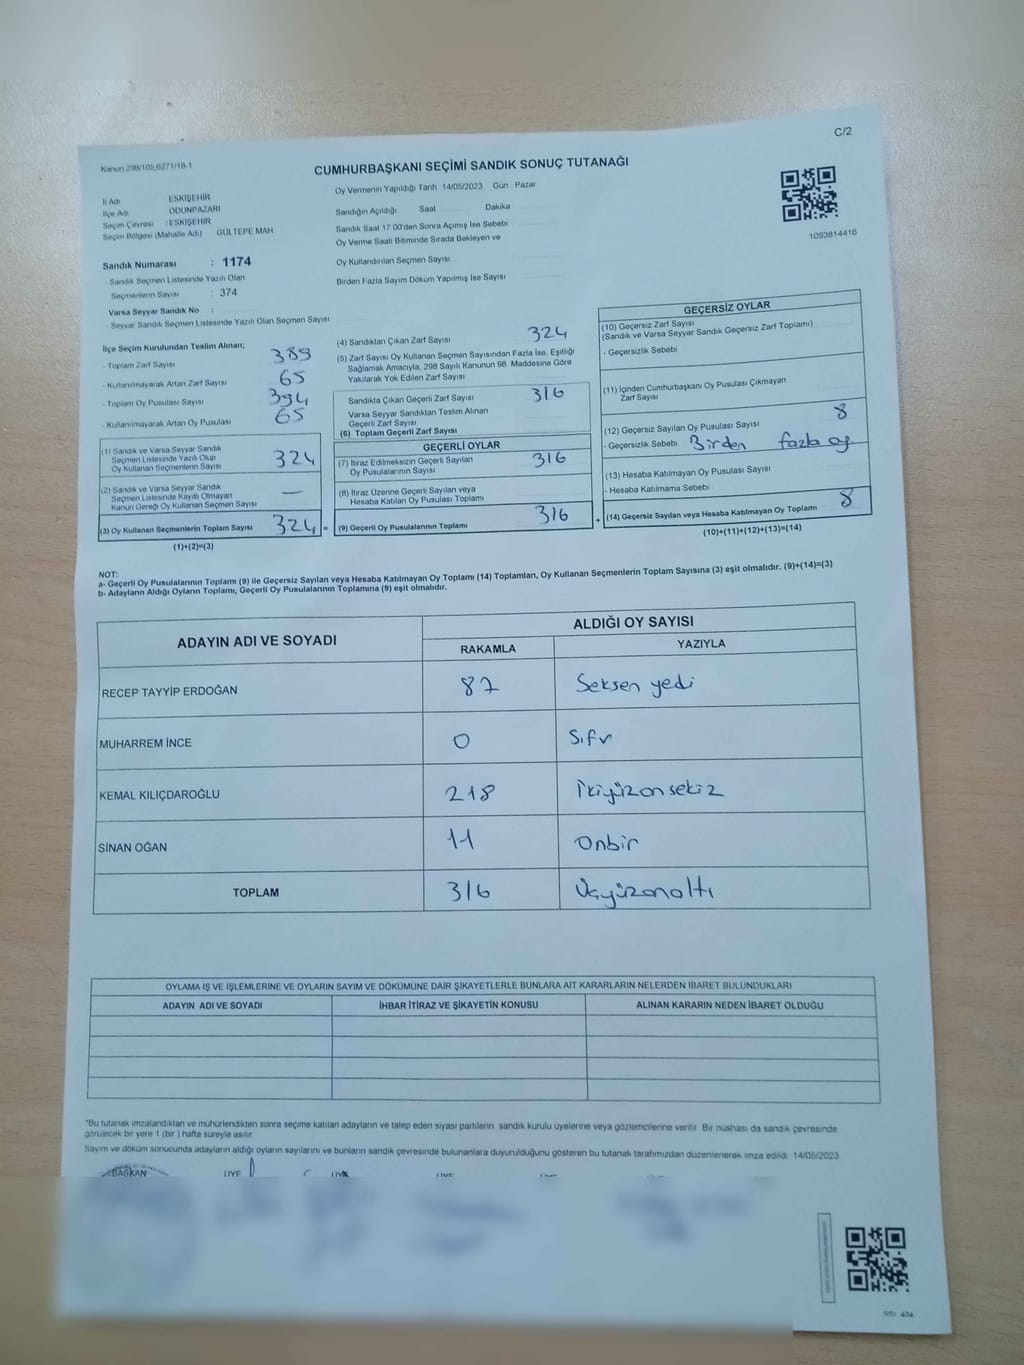 C/2
Kanun 298/105,6271/18-1
CUMHURBAŞKANI SEÇİMİ SANDIK SONUÇ TUTANAĞI
İl Adı ESKİŞEHİR
İlçe Adı ODUNPAZARI
Seçim Çevresi : ESKİŞEHİR
Seçim Bölgesi (Mahalle Adı) GÜLTEPE MAH.
Sandık Numarası : 1174
- Sandık Seçmen Listesinde Yazılı Olan
Seçmenlerin Sayısı : 374
Varsa Seyyar Sandık No :
- Seyyar Sandık Seçmen Listesinde Yazılı Olan Seçmen Sayısı
Oy Vermenin Yapıldığı Tarih 14/05/2023 Gün Pazar
Sandığın Açıldığı Saat Dakika
Sandık Saat 17.00'den Sonra Açımış İse Sebebi
Oy Verme Saati Bitiminde Sırada Bekleyen ve
Oy Kullandırılan Seçmen Sayısı
Birden Fazla Sayım Döküm Yapılmış İse Sayısı
1093814416
İlçe Seçim Kurulundan Teslim Alınan;
- Toplam Zarf Sayısı 389
- Kullanılmayarak Artan Zarf Sayısı 65
- Toplam Oy Pusulası Sayısı 394
- Kullanılmayarak Artan Oy Pusulası 65
(1) Sandık ve Varsa Seyyar Sandık
Seçmen Listesinde Yazılı Olup
Oy Kullanan Seçmenlerin Sayısı 324
(2) Sandık ve Varsa Seyyar Sandık
Seçmen Listesinde Kayıtlı Olmayan
Kanun Gereği Oy Kullanan Seçmen Sayısı —
(3) Oy Kullanan Seçmenlerin Toplam Sayısı 324 =
(1)+(2)=(3)
(4) Sandıktan Çıkan Zarf Sayısı 324
(5) Zarf Sayısı Oy Kullanan Seçmen Sayısından Fazla İse, Eşitliği
Sağlamak Amacıyla, 298 Sayılı Kanunun 98. Maddesine Göre
Yakılarak Yok Edilen Zarf Sayısı
Sandıkta Çıkan Geçerli Zarf Sayısı 316
Varsa Seyyar Sandıktan Teslim Alınan
Geçerli Zarf Sayısı
(6) Toplam Geçerli Zarf Sayısı
GEÇERLİ OYLAR
(7) İtiraz Edilmeksizin Geçerli Sayılan
Oy Pusulalarının Sayısı 316
(8) İtiraz Üzerine Geçerli Sayılan veya
Hesaba Katılan Oy Pusulası Toplamı
(9) Geçerli Oy Pusulalarının Toplamı 316 +
GEÇERSİZ OYLAR
(10) Geçersiz Zarf Sayısı
(Sandık ve Varsa Seyyar Sandık Geçersiz Zarf Toplamı)
- Geçersizlik Sebebi
(11) İçinden Cumhurbaşkanı Oy Pusulası Çıkmayan
Zarf Sayısı
(12) Geçersiz Sayılan Oy Pusulası Sayısı 8
- Geçersizlik Sebebi Birden fazla oy
(13) Hesaba Katılmayan Oy Pusulası Sayısı
- Hesaba Katılmama Sebebi
(14) Geçersiz Sayılan veya Hesaba Katılmayan Oy Toplamı 8
(10)+(11)+(12)+(13)=(14)
NOT:
a- Geçerli Oy Pusulalarının Toplamı (9) ile Geçersiz Sayılan veya Hesaba Katılmayan Oy Toplamı (14) Toplamları, Oy Kullanan Seçmenlerin Toplam Sayısına (3) eşit olmalıdır. (9)+(14)=(3)
b- Adayların Aldığı Oyların Toplamı, Geçerli Oy Pusulalarının Toplamına (9) eşit olmalıdır.
ADAYIN ADI VE SOYADI ALDIĞI OY SAYISI
RAKAMLA YAZIYLA
RECEP TAYYİP ERDOĞAN 87 Seksen yedi
MUHARREM İNCE 0 Sıfır
KEMAL KILIÇDAROĞLU 218 İkiyüzonsekiz
SİNAN OĞAN 11 Onbir
TOPLAM 316 Üçyüzonaltı
OYLAMA İŞ VE İŞLEMLERİNE VE OYLARIN SAYIM VE DÖKÜMÜNE DAİR ŞİKAYETLERLE BUNLARA AİT KARARLARIN NELERDEN İBARET BULUNDUKLARI
ADAYIN ADI VE SOYADI İHBAR İTİRAZ VE ŞİKAYETİN KONUSU ALINAN KARARIN NEDEN İBARET OLDUĞU
"Bu tutanak imzalandıktan ve mühürlendikten sonra seçime katılan adayların ve talep eden siyasi partilerin sandık kurulu üyelerine veya gözlemcilerine verilir. Bir nüshası da sandık çevresinde
görülecek bir yere 1 (bir) hafta süreyle asılır.
Sayım ve döküm sonucunda adayların aldığı oyların sayılarını ve bunların sandık çevresinde bulunanlara duyurulduğunu gösteren bu tutanak tarafımızdan düzenlenerek imza edildi. 14/05/2023
BAŞKAN ÜYE ÜYE ÜYE